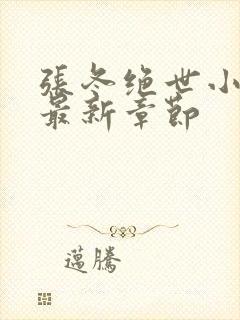 張冬绝世小
最新章节
邁騰